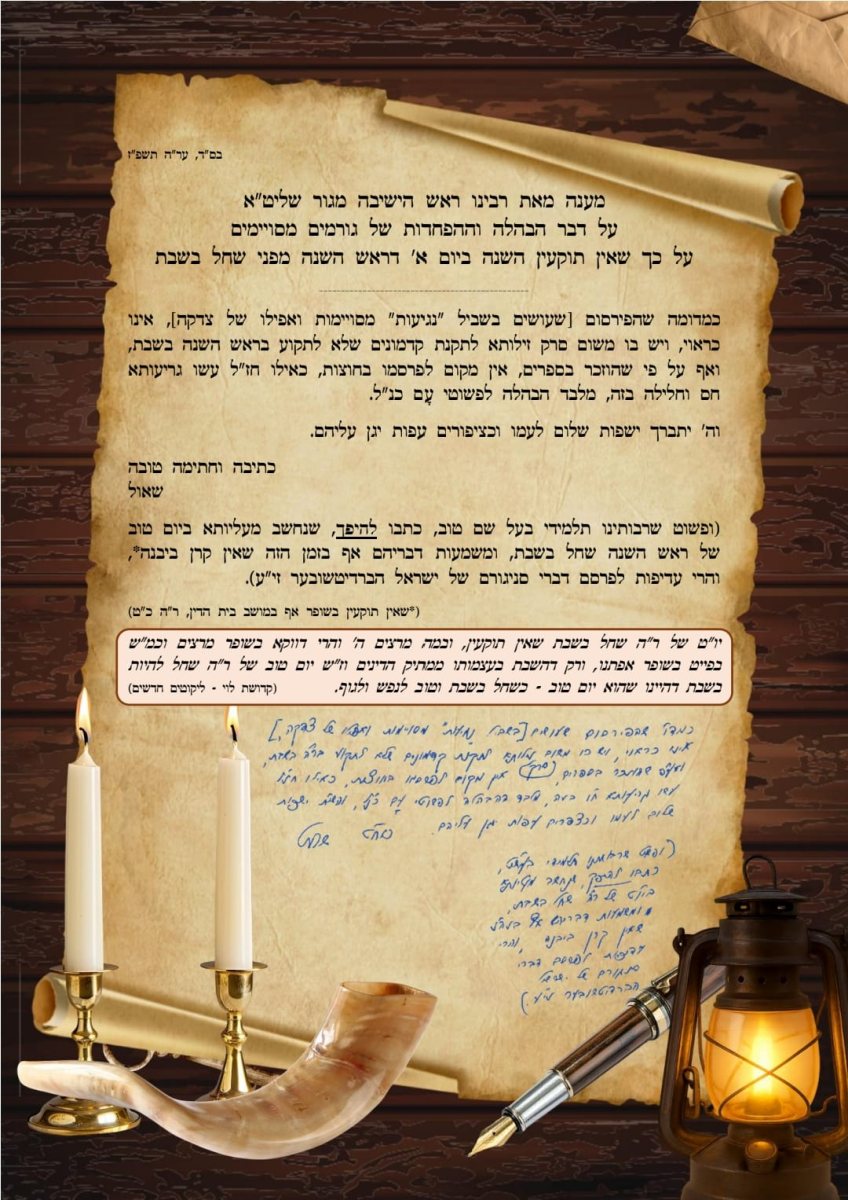 בס"ד, ער"ה תשפ"ז
מענה מאת רבינו ראש הישיבה מגור שליט"א
על דבר הבהלה וההפחדות של גורמים מסויימים
על כך שאין תוקעין השנה ביום א' דראש השנה מפני שחל בשבת
כמדומה שהפירסום [שעושים בשביל "נגיעות" מסויימות ואפילו של צדקה], אינו
כראוי, ויש בו משום סרק זילותא לתקנת קדמונים שלא לתקוע בראש השנה בשבת,
ואף על פי שהוזכר בספרים, אין מקום לפרסמו בחוצות, כאילו חז"ל עשו גריעותא
חס וחלילה בזה, מלבד הבהלה לפשוטי עָם כנ"ל.
וה' יתברך ישפות שלום לעמו וכציפורים עפות יגן עליהם.
כתיבה וחתימה טובה
שאול
(ופשוט שרבותינו תלמידי בעל שם טוב, כתבו להיפך, שנחשב מעליותא ביום טוב
של ראש השנה שחל בשבת, ומשמעות דבריהם אף בזמן הזה שאין קרן ביבנה*,
והרי עדיפות לפרסם דברי סניגורם של ישראל הברדיטשובער זי"ע).
(*שאין תוקעין בשופר אף במושב בית הדין, ר"ה כ"ט)
יו"ט של ר"ה שחל בשבת שאין תוקעין, ובמה מרצים ה' והרי דווקא בשופר מרצים וכמ"ש
בפייט בשופר אפתנו, ורק דהשבת בעצמותו ממתיק הדינים וז"ש יום טוב של ר"ה שחל להיות
בשבת דהיינו שהוא יום טוב - כשחל בשבת וטוב לנפש ולגוף. (קדושת לוי - ליקוטים חדשים)
כמדו' שהפירסום שעושים [בשביל "נגיעות" מסוימות ואפילו של צדקה,]
אינו כראוי, ויש בו משום זילותא לתקנת קדמונים שלא לתקוע בר"ה בשבת,
ואעפ שהוזכר בספרים, (סרק) אין מקום לפרסמו בחוצות, כאילו חז"ל
עשו גריעותא ח"ו בזה, מלבד הבהלה לפשוטי עָם כנ"ל, והשי"ת ישפות
שלום לעמו וכצפרים עפות יגן עליהם. כוח"ט שאול
(ופשוט שרבותינו תלמידי בעש"ט,
כתבו להיפך, שנחשב מעליותא
ביו"ט של ר"ה שחל בשבת,
ומשמעות דבריהם אף בזה"ז
שאין קרן ביבנה, והרי
עדיפות לפרסם דברי
סניגורם של ישראל
הברדיטשובער זי"ע.)